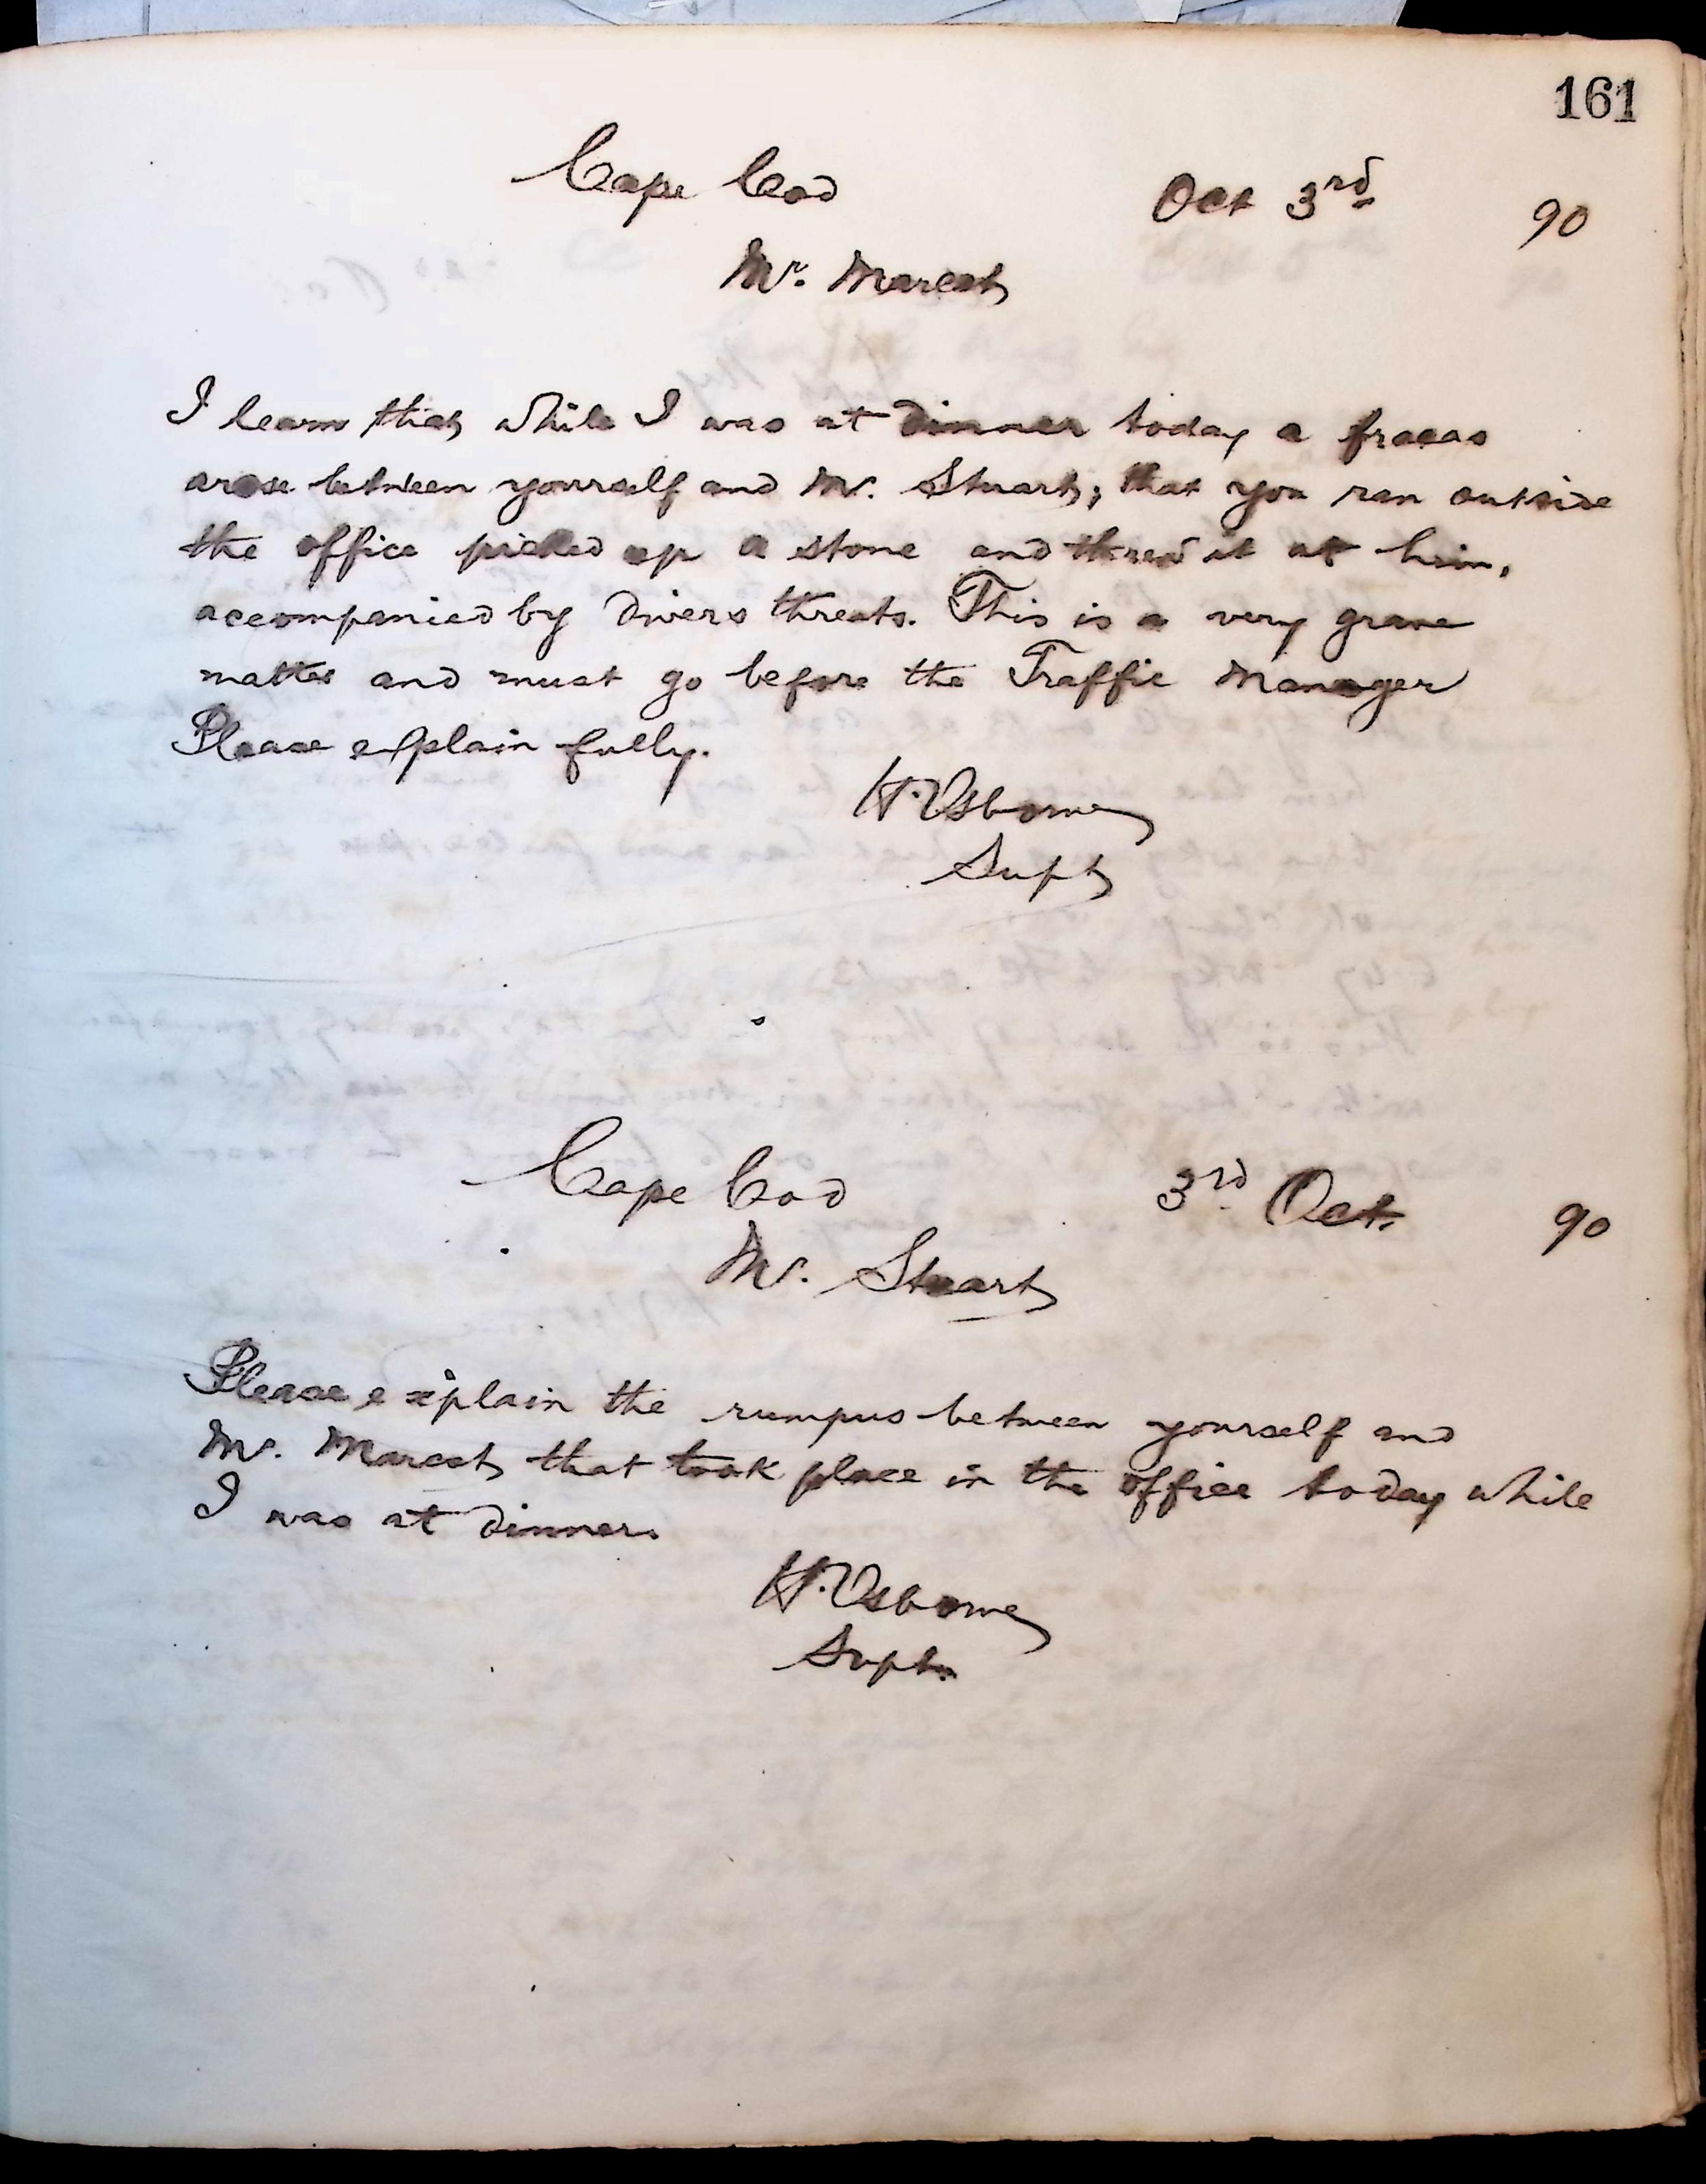 161
Cape Cod Oct 3rd 90
Mr. Marcot
I learn that while I was at dinner today a fracas
arose between yourself and Mr. Stuart; that you ran outside
the office picked up a stone and threw it at him,
accompanied by divers threats. This is a very grave
matter and must go before the Traffic Manager
Please explain fully.
H. Osborne
Supt
Cape Cod 3rd Oct. 90
Mr. Stuart
Please explain the rumpus between yourself and
Mr. Marcot that took place in the office today while
I was at dinner.
H. Osborne
Supt.